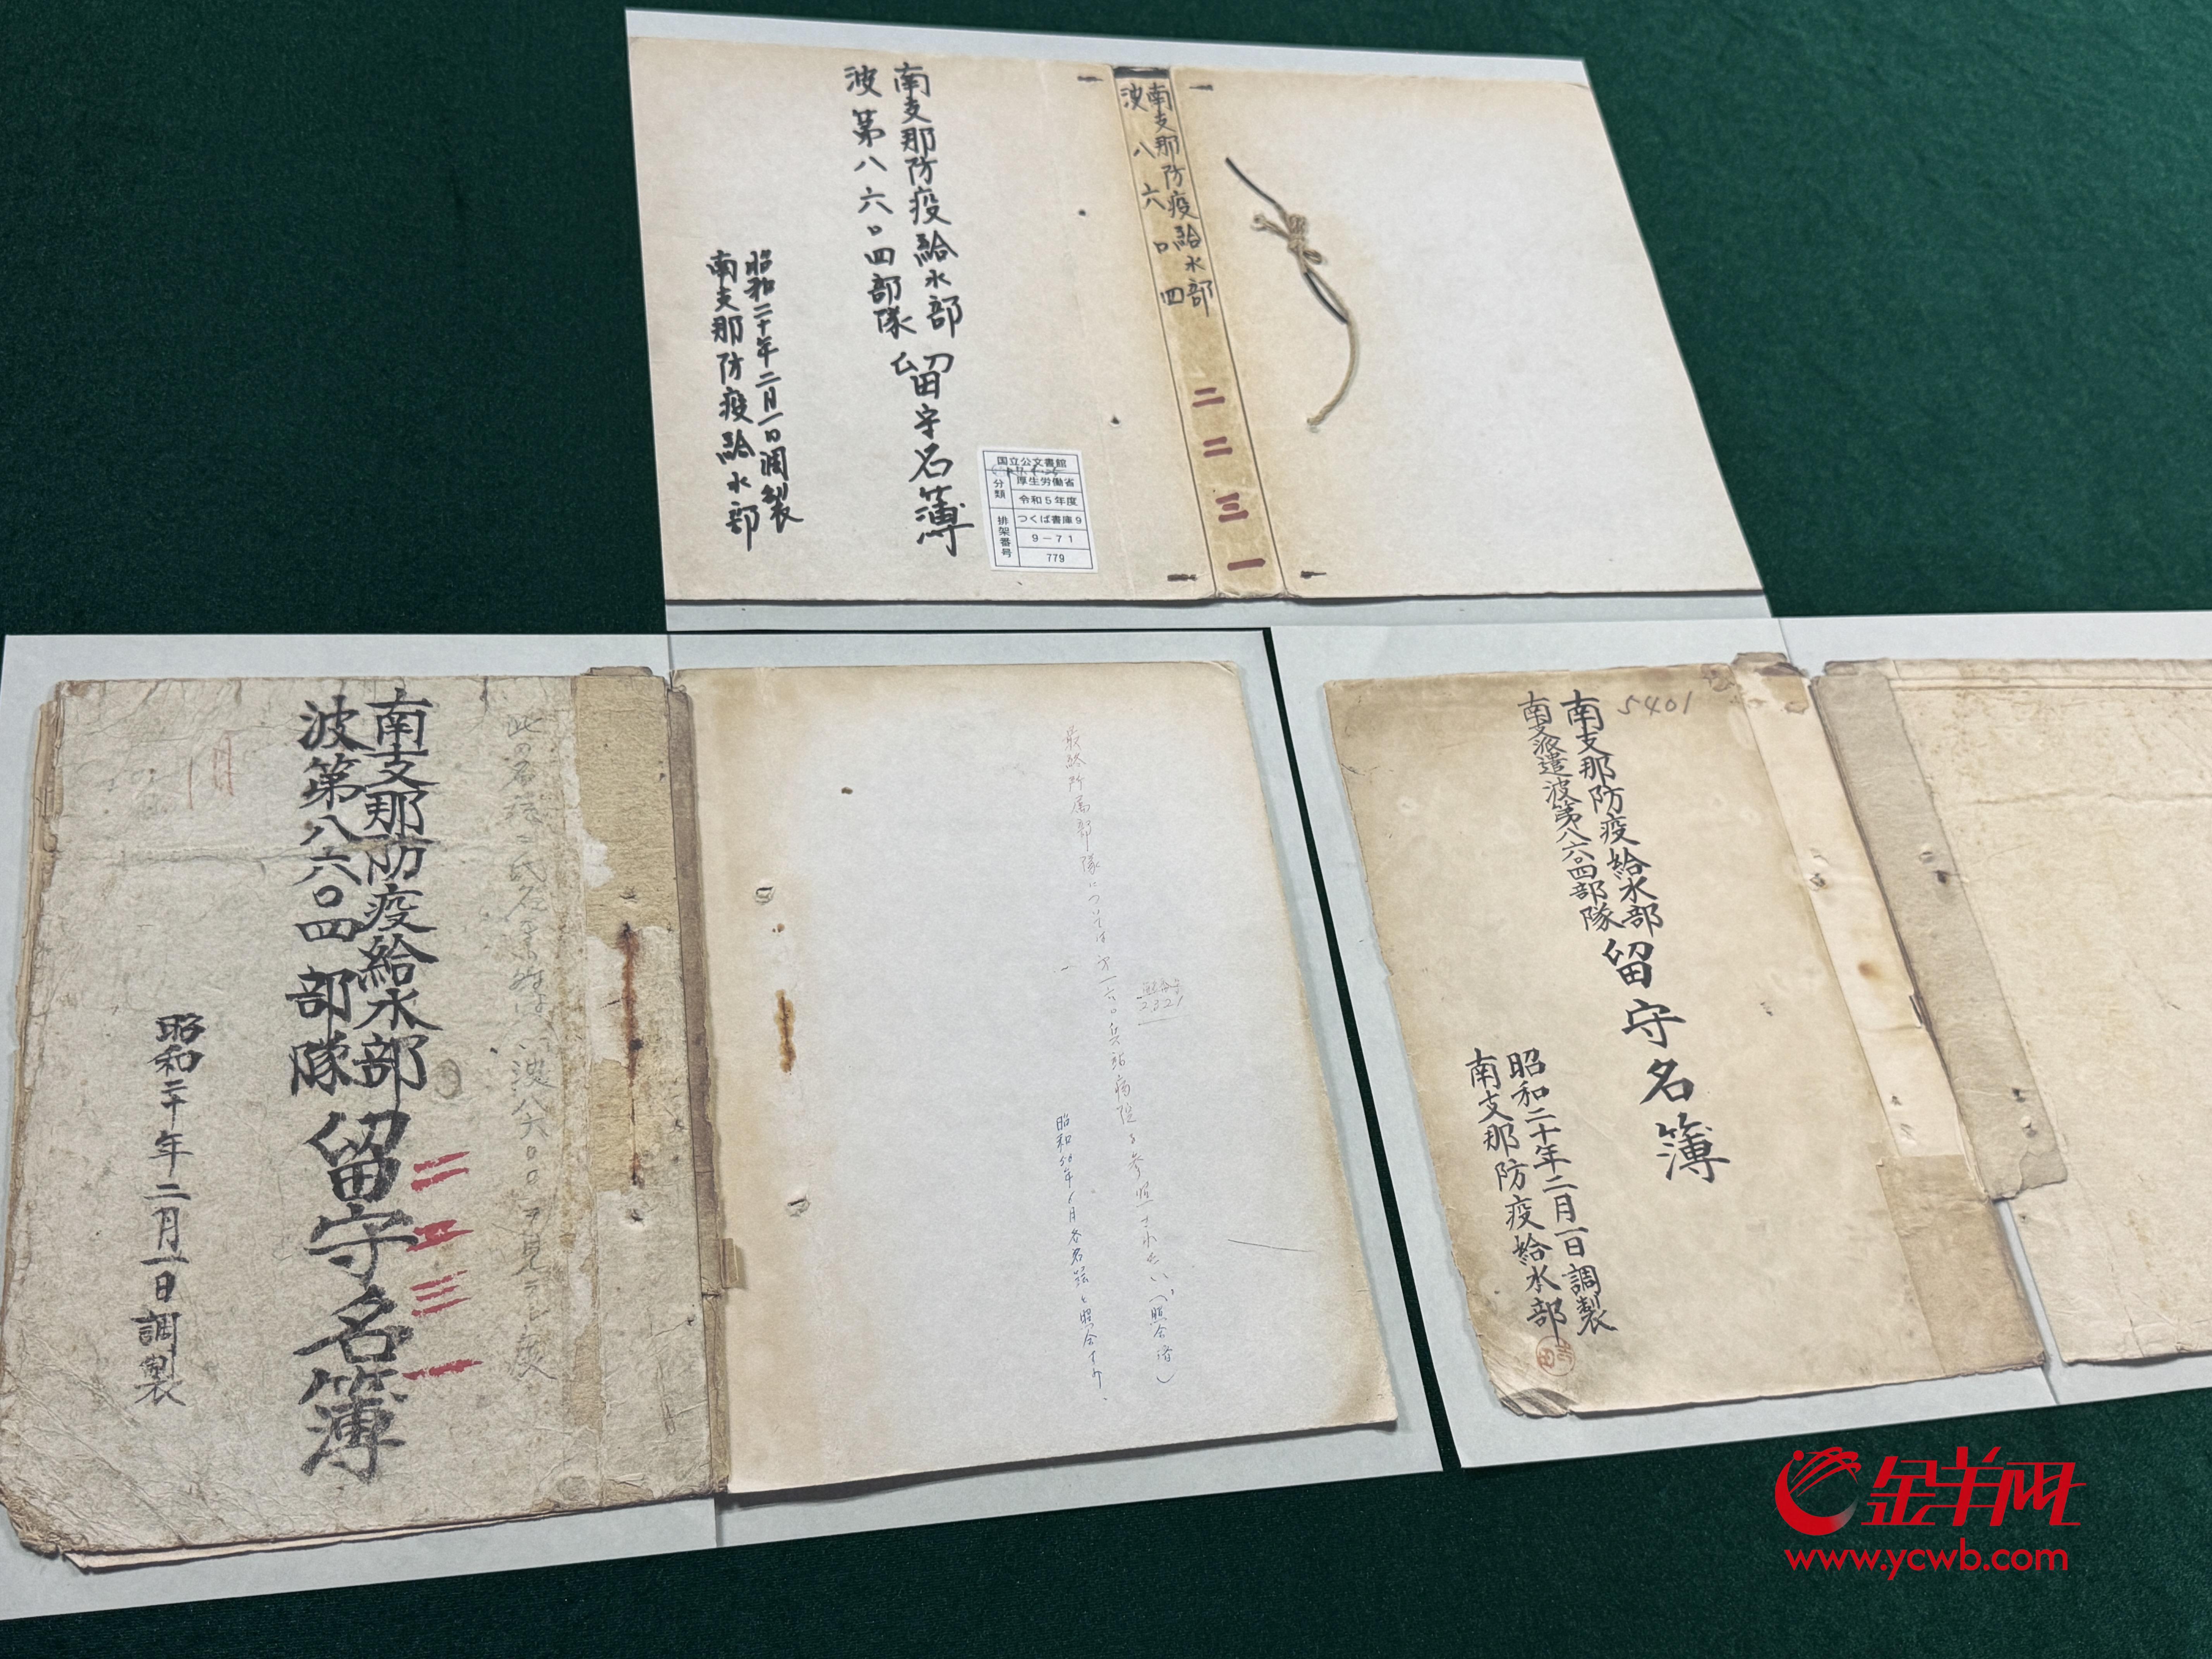 南支那防疫給水部
波第八六〇四部隊
留守名簿
昭和二十年二月一日調製
南支那防疫給水部
国立公文書館
分類
厚生労働省
令和5年度
排架番号
つくば書庫9
9-71
779
南支那防疫給水部
波八六〇四
二二三一
南支那防疫給水部
波第八六〇四部隊
留守名簿
昭和二十年二月一日調製
二二三一
2321
最終所属部隊については
兵站病院を参照
(照合済)
5401
南支那防疫給水部
南支派遣波第八六〇四部隊
留守名簿
昭和二十年二月一日調製
南支那防疫給水部
金羊网
www.ycwb.com